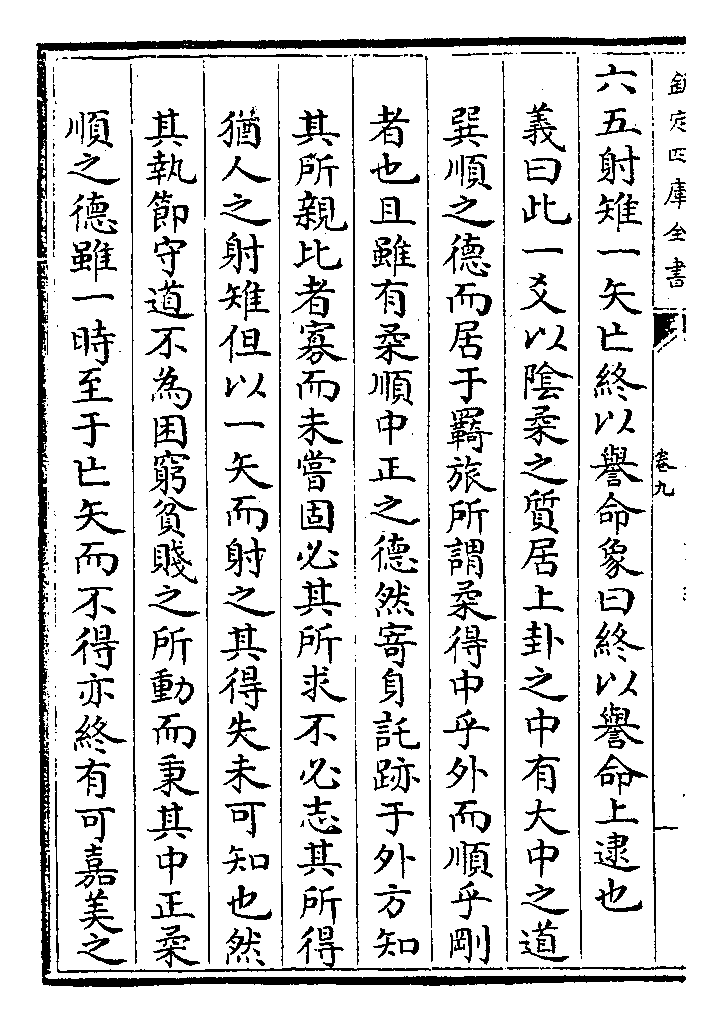 欽定四庫全書
卷九
六五射雉一矢亡終以譽命象曰終以譽命上逮也
義曰此一爻以陰柔之質居上卦之中有大中之道
巽順之德而居于羇旅所謂柔得中乎外而順乎剛
者也且雖有柔順中正之德然寄身託跡于外方知
其所親比者寡而未嘗固必其所求不必志其所得
猶人之射雉但以一矢而射之其得失未可知也然
其執節守道不為困窮貧賤之所動而秉其中正柔
順之德雖一時至于亡矢而不得亦終有可嘉美之